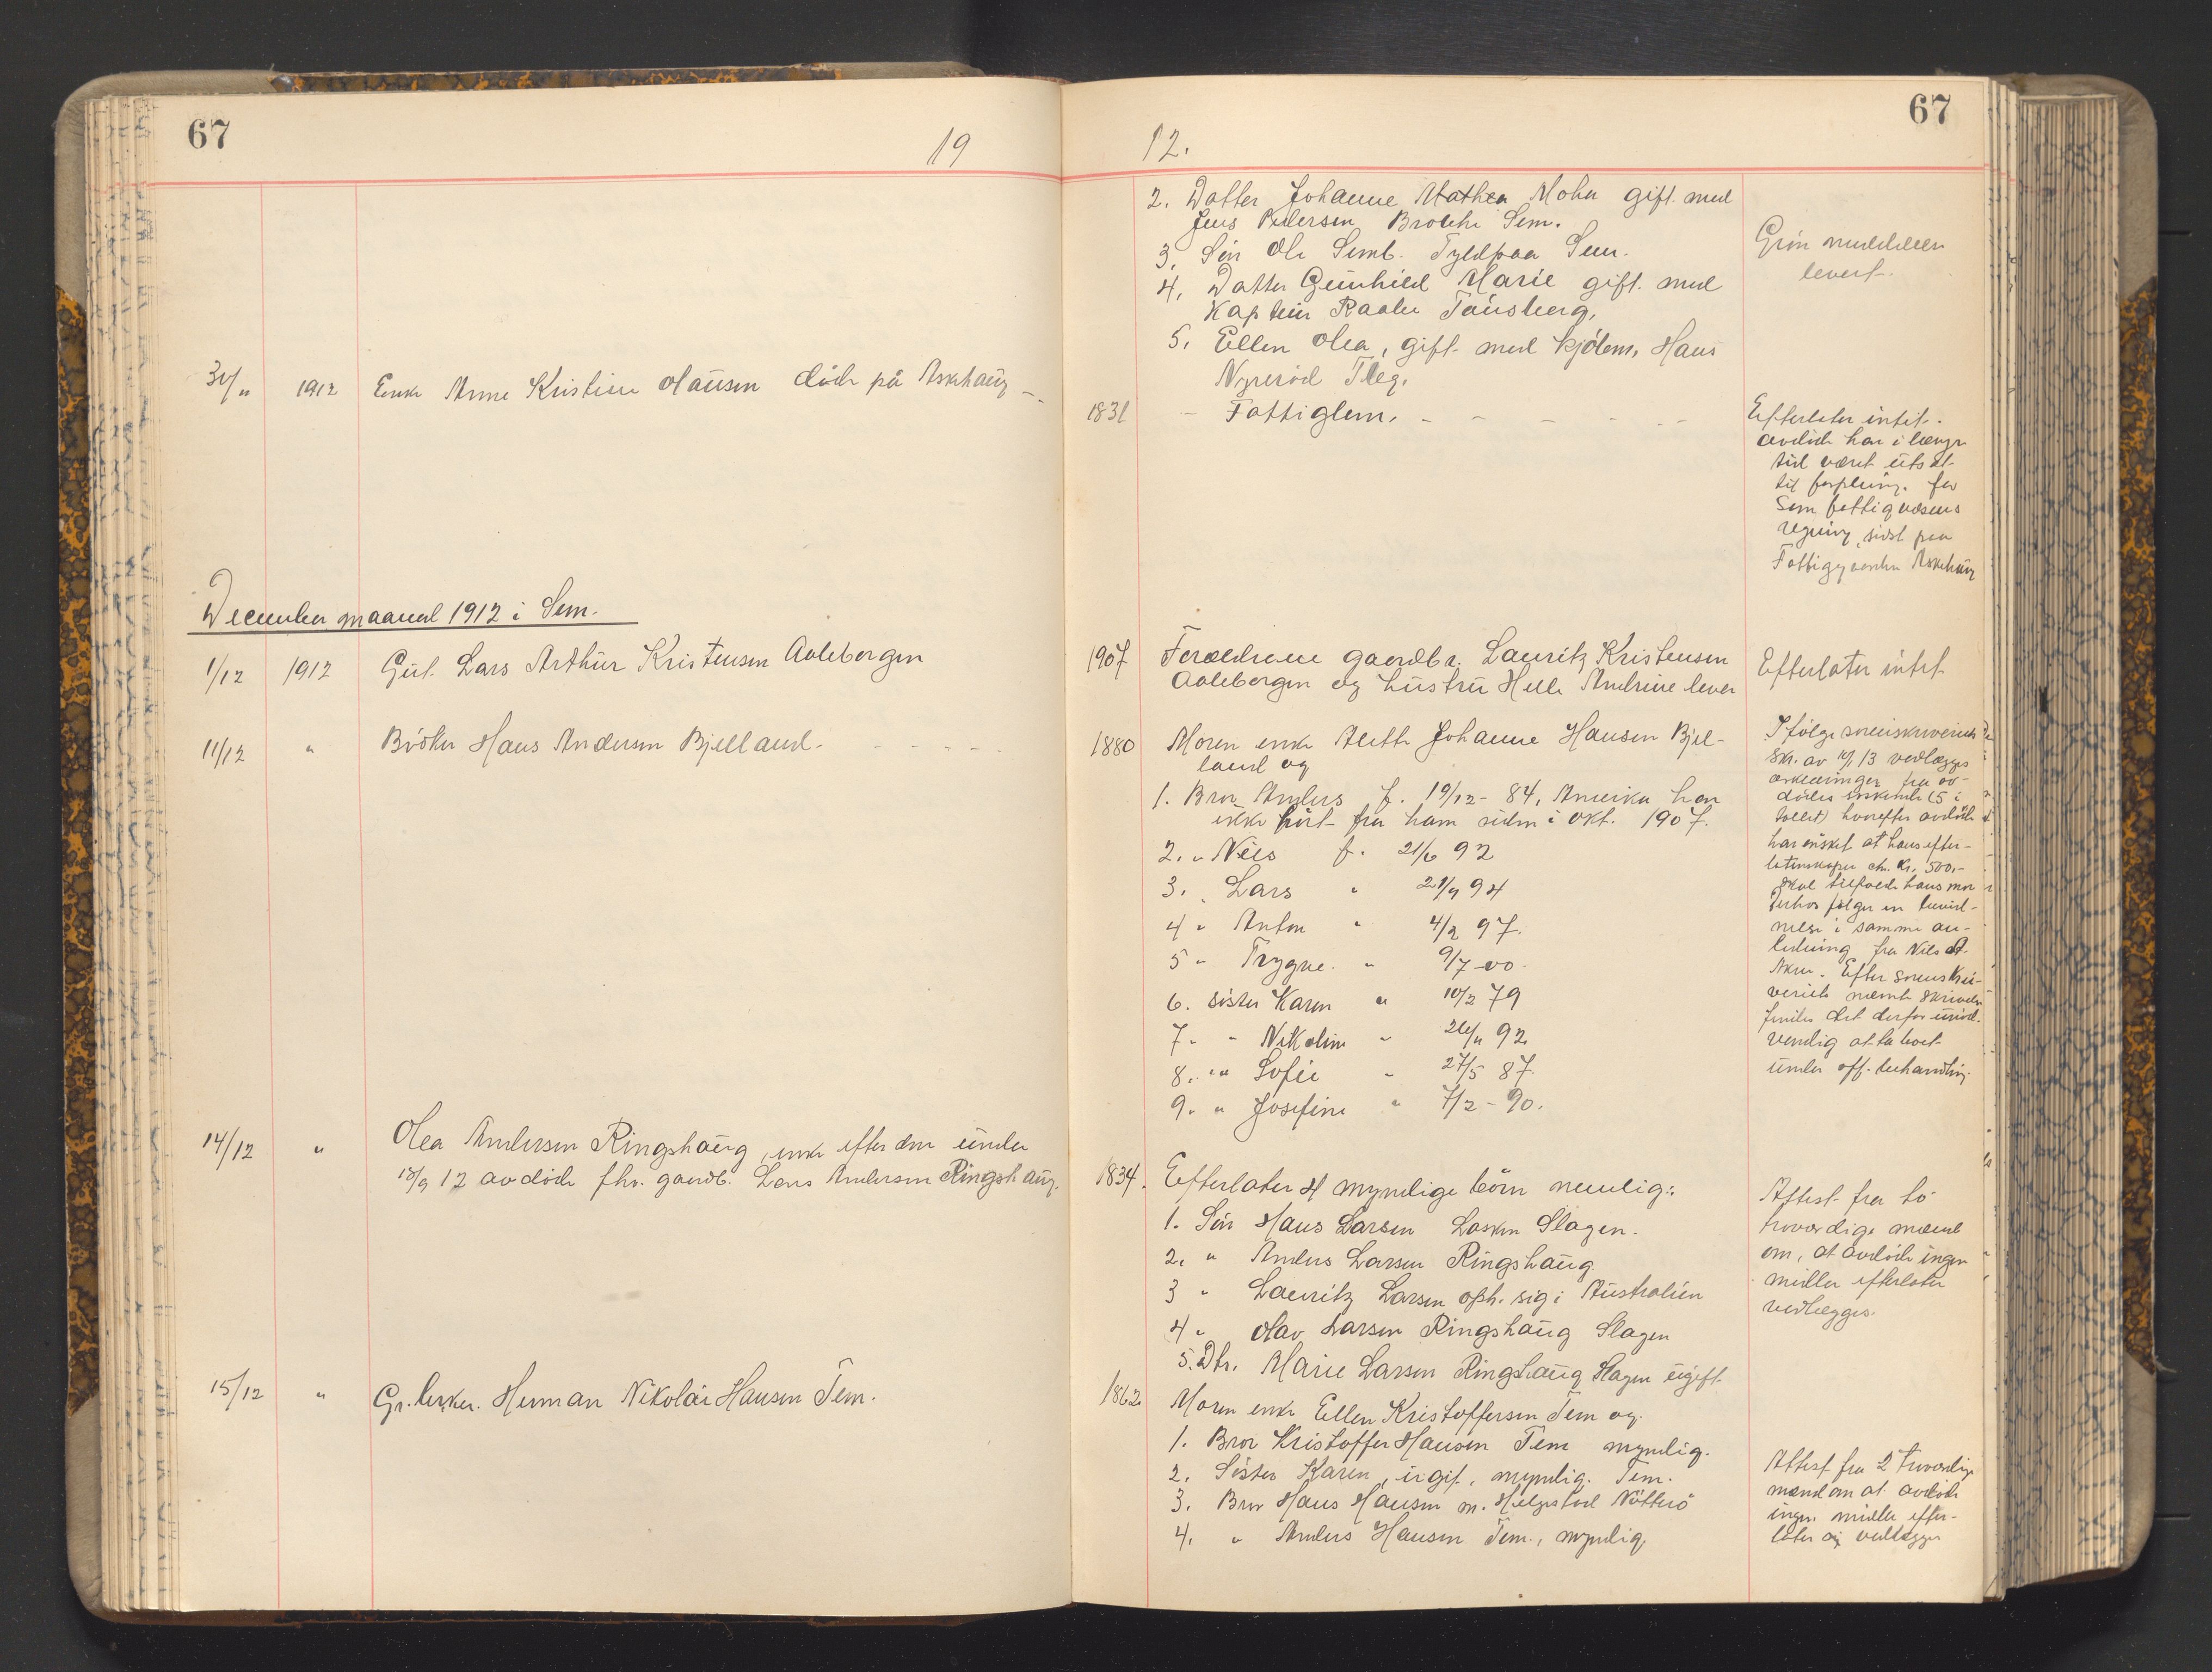 67
19
30/11 1912 Enke Anne Kristine Olausen döde på Askehaug
December maaned 1912 i Sem.
1/12 1912 Gut. Lars Arthur Kristensen Aolebergen
11/12 " Bröker Hans Andersen Bjelland.
14/12 " Olea Andersen Ringshaug, enke efter den under
18/9 12 avdöde fhv. gaardb. Lars Andersen Ringshaug.
15/12 " Gr. Hermann Nikolai Hansen Tem.
67
12.
2. Datter Johanne Mathea Mohn gift med
Jens Pedersen Sem.
3. Sön Ole Semb. Tyldpaa Sem.
4. Datter Gunhild Marie gift. med
Kaptein Raabe Tönsberg.
5. Ellen Olea, gift med kjöbm. Hans
Nyreröd Tbeg.
levert.
1831 - Fattiglem.
Efterlater intet.
avdöde har i længre
tid været utsat
til forpleining. for
Sem fattigvæsens
regning, sidst paa
Fattiggaarden Askehaug
1907 Forældrene gaardbr. Lauritz Kristensen
Aolebergen og hustru Helle Andrine lever
Efterlater intet
1880 Moren enke Alette Johanne Hansen Bjel-
land og
1. Bror Anders f. 19/12 - 84, Amerika har
ikke hört fra ham siden i Okt. 1907.
2. " Nils f. 21/6 92
3. " Lars " 21/9 94
4 " Anton " 4/2 97.
5 " Trygve. " 9/7 -00.
6. söster Karen " 10/2 79
7. " Nikoline " 26/11 92
8. " Sofie " 27/5 87.
9. " Josefine " 7/2 - 90.
Ifölge sorenskriverens
skr. av 10/1 13 vedlægges
erklæringer fra av-
dödes söskende (5 i
tallet) hvorefter avdöde
har önsket at hans efter-
latenskaper ca. Kr. 500.-
skal tilfalde hans mor
derhos fölger en bevid-
nelse i samme an-
ledning fra Nils A.
Aker. Efter sorenskri-
verens nævnte skrivelse
findes det derfor unöd-
vendig at ta boet
under off. behandling.
1834. Efterlater 4 myndige börn nemlig:
1. Sön Hans Larsen Slagen.
2. " Anders Larsen Ringshaug.
3 " Lauritz Larsen oph. sig i Australien
4 " Olav Larsen Ringshaug Slagen
5. Dtr. Marie Larsen Ringshaug Slagen ugift
Attest fra to
troværdige mænd
om, at avdöde ingen
midler efterlater
vedlægges.
1862 Moren enke Ellen Kristoffersen Tem og.
1. Bror Kristoffer Hansen Tem myndig.
2. Söster Karen, ugif. myndig. Tem.
3. Bror Hans Hansen m. Nötterö
4. " Anders Hansen Tem., myndig.
Attest fra 2 troværdige
mænd om at avdöde
ingen midler efter-
later sig vedlægges